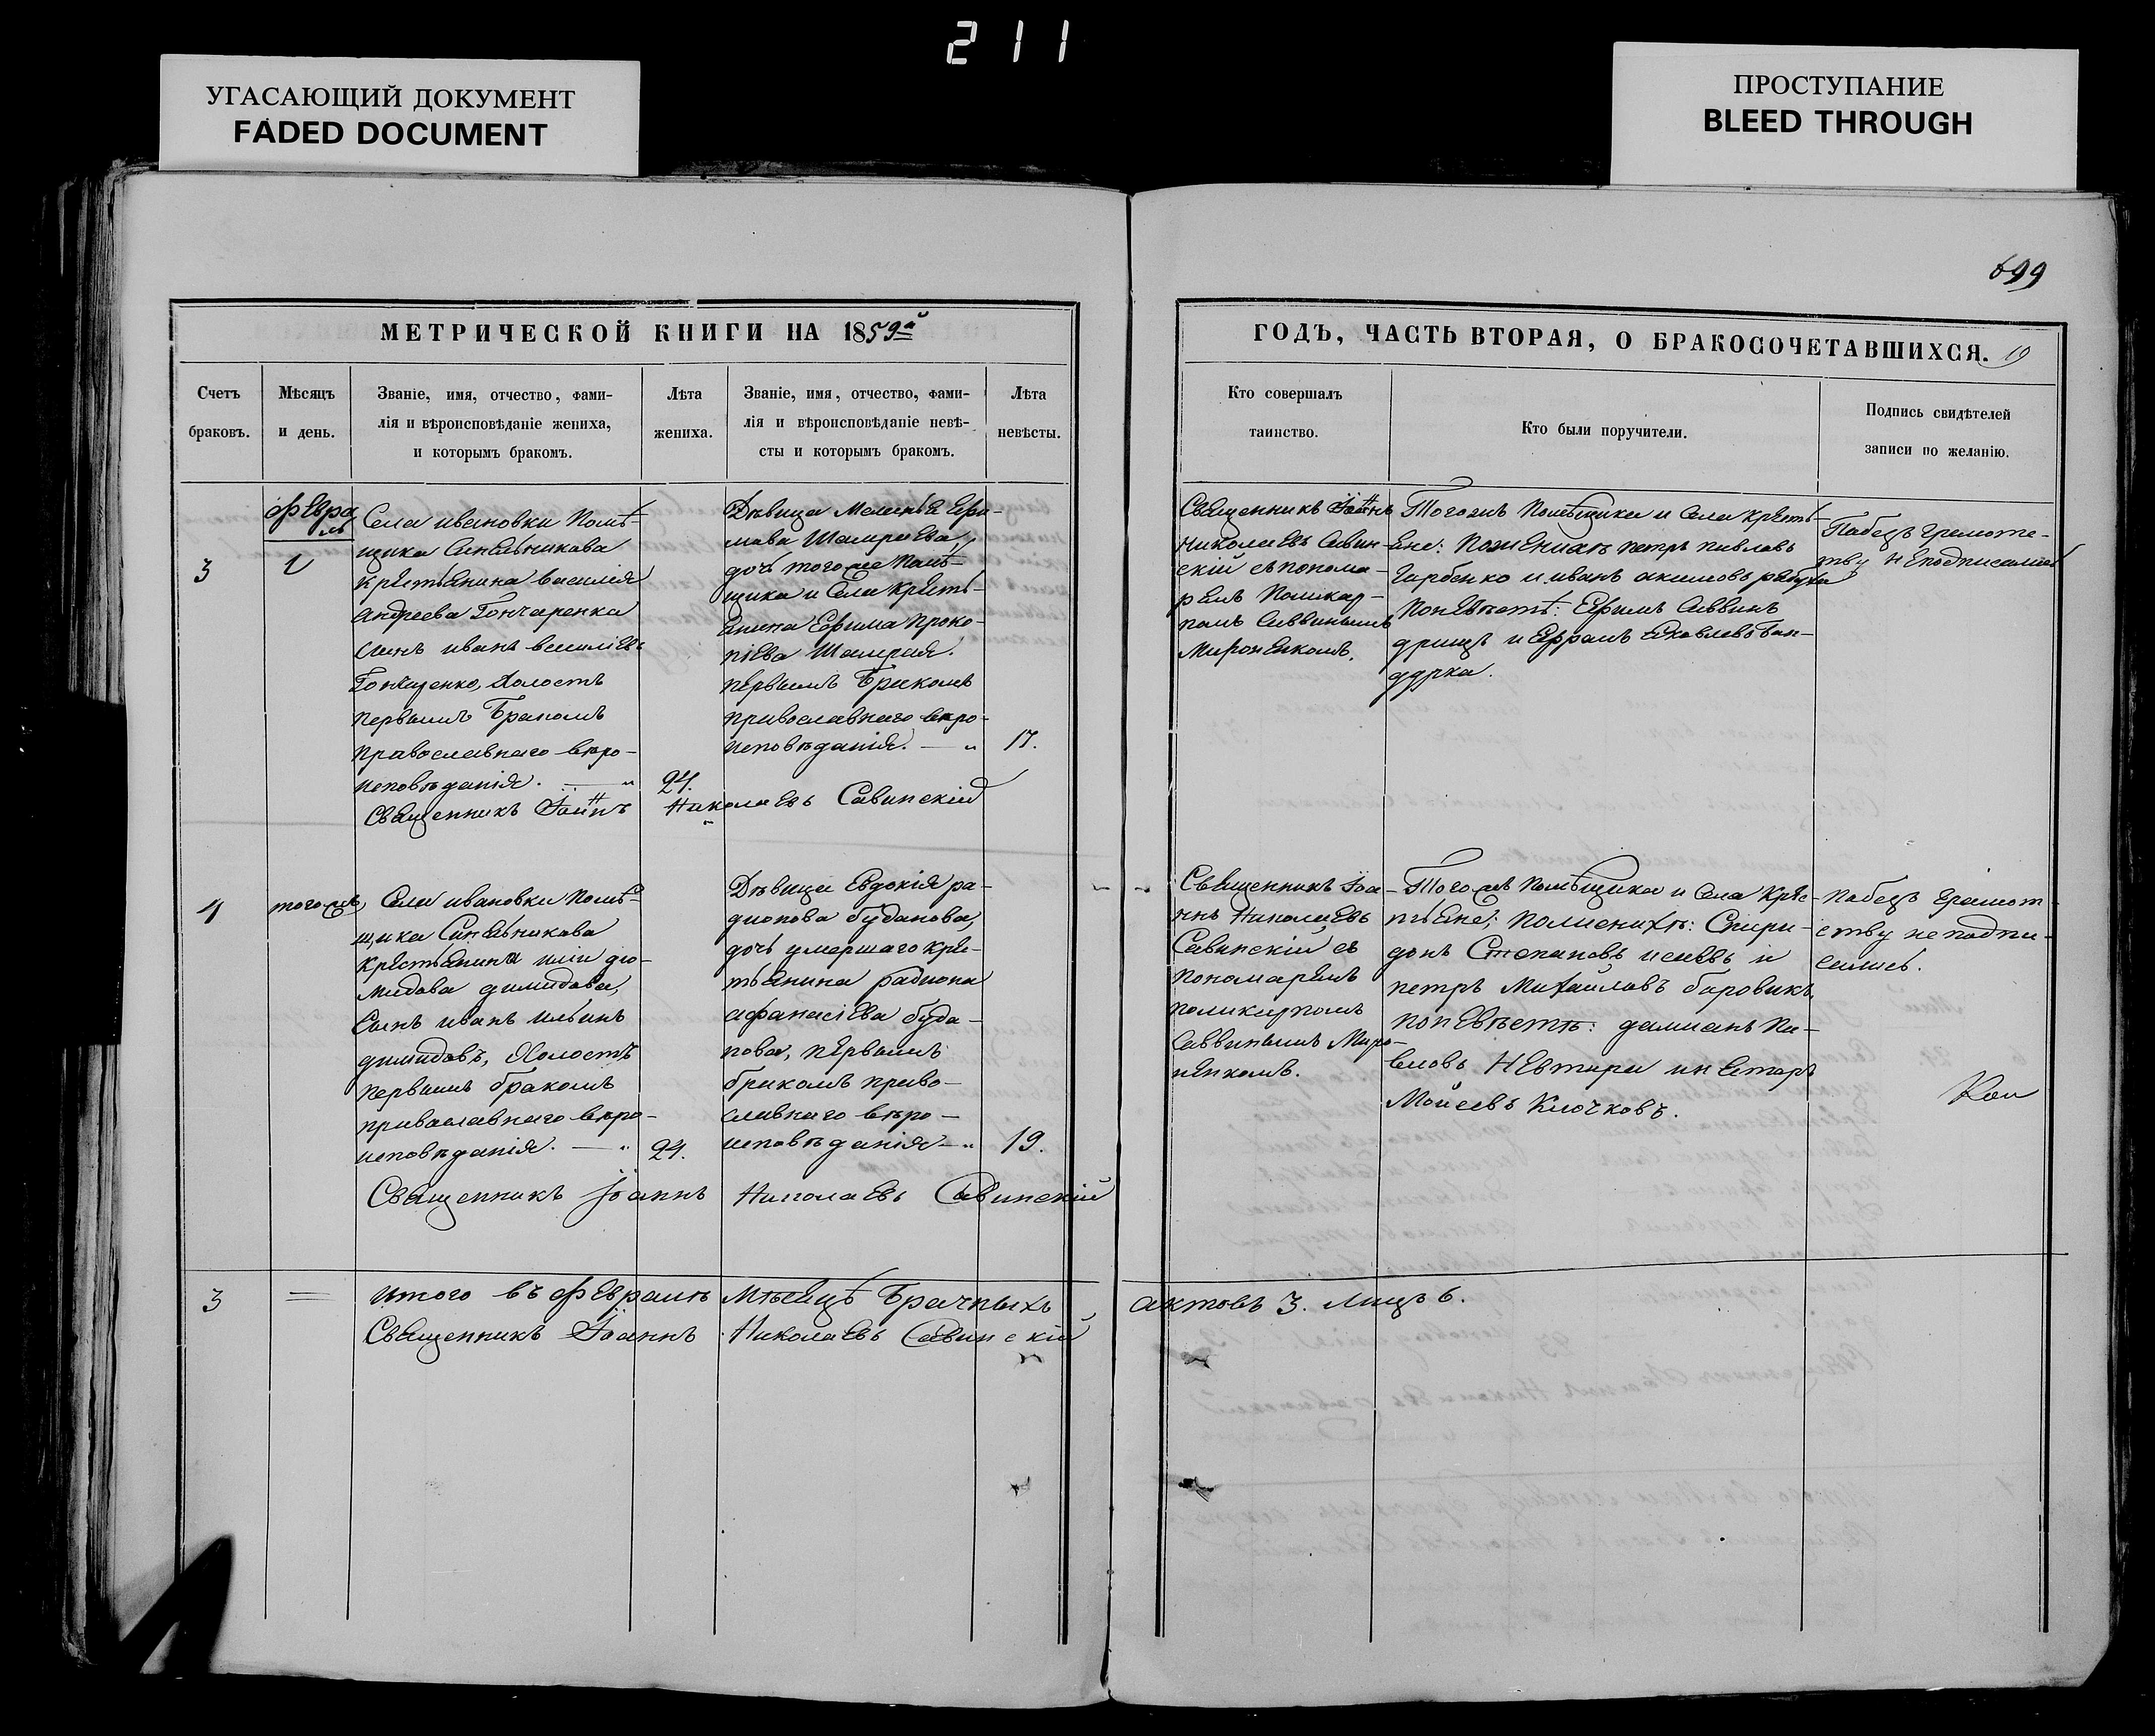 211
УГАСАЮЩИЙ ДОКУМЕНТ
FADED DOCUMENT
ПРОСТУПАНИЕ
BLEED THROUGH
699
МЕТРИЧЕСКОЙ КНИГИ НА 1859й
ГОДЪ, ЧАСТЬ ВТОРАЯ, О БРАКОСОЧЕТАВШИХСЯ.
Счетъ
браковъ.
Мѣсяцъ
и день.
Званіе, имя, отчество, фами-
лія и вѣроисповѣданіе жениха,
и которымъ бракомъ.
Лѣта
жениха.
Званіе, имя, отчество, фами-
лія и вѣроисповѣданіе невѣ-
сты и которымъ бракомъ.
Лѣта
невѣсты.
Кто совершалъ
таинство.
Кто были поручители.
Подпись свидѣтелей
записи по желанію.
3
Февра
ль
Села ивановки Помѣ-
щика Синельникова
крестьянина василія
андреева Гончаренка
сынъ иванъ василіевъ
Гончаренко, холостъ
первымъ Бракомъ
православнаго вѣро-
исповѣданія.
24.
Дѣвица Меланья Ефи-
мова
дочь тогоже Помѣ-
щика и Села крестъ-
янина Ефима Проко-
піева
первымъ Бракомъ
православнаго вѣро-
исповѣданія.
17.
Священникъ Іоаннъ Николаевъ Савинскій
Священникъ Іоаннъ
Николаевъ Савин-
скій съ понома-
ремъ Поликар-
помъ Саввинымъ
Мироненкомъ.
Тогожъ Помѣщика и Села крестъ-
яне: Поженихѣ петръ павловъ
Гарбенко и иванъ акимовъ
Поневѣстѣ: Ефимъ Саввинъ
и Ефремъ Яковлевъ Бан-
дурка.
Набезъ грамоте-
тву неподписались
4
тогожъ
Села ивановки Помѣ-
щика Синельникова
крестьянина иліи дю-
мидова димидова,
сынъ иванъ ильинъ
димидовъ, Холостъ
первымъ бракомъ
православнаго вѣро-
исповѣданія.
24.
Дѣвица Евдокія ра-
діонова буданова,
дочь умершаго крес-
тьянина радиона
афанасіева буда-
нова, первымъ
бракомъ право-
славнаго вѣро-
исповѣданія
19.
Священникъ Іоаннъ Николаевъ Савинскій
Священникъ Іоа-
ннъ Николаевъ
Савинскій съ
пономаремъ
поликарпомъ
Саввинымъ Миро-
ненкомъ.
Тогожъ помѣщика и Села крес-
тьяне; поженихѣ: Спири-
донъ Степановъ и
петръ Михайловъ боровикъ
поневѣстѣ: даміанъ Па-
вловъ и
Моисеевъ Клочковъ.
Набезъ грамот-
ству неподпи-
сались.
3
итого въ Февралѣ Мѣсяцѣ Брачныхъ актовъ 3. лицъ 6.
Священникъ Іоаннъ Николаевъ Савинскій